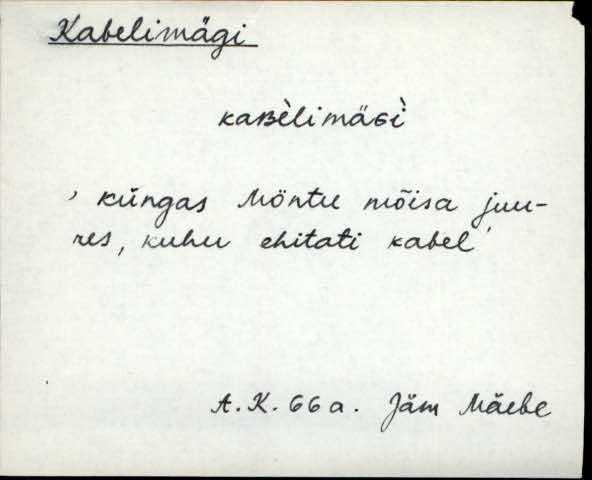 Kabelimägi
kaʙèlimäɢì
' küngas Möntu mõisa juu-
res, kuhu ehitati kabel '
A.K. 66a. Jäm Mäebe